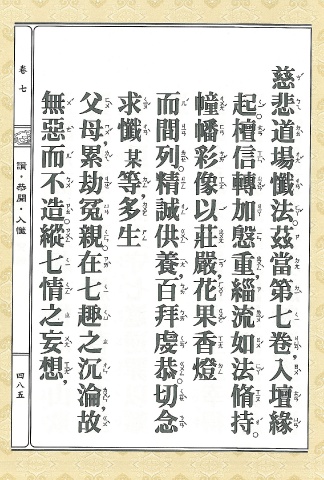 慈悲道場懺法。茲當第七卷,入壇緣
起。檀信轉加慇重,緇流如法脩持。
幢幡彩像以莊嚴,花果香燈
而間列。精誠供養,百拜虔恭。切念
求懺某等,多生
父母,累劫冤親。在七趣之沉淪,故
無惡而不造。縱七情之妄想,
卷七
讚・恭聞・入懺
四八五